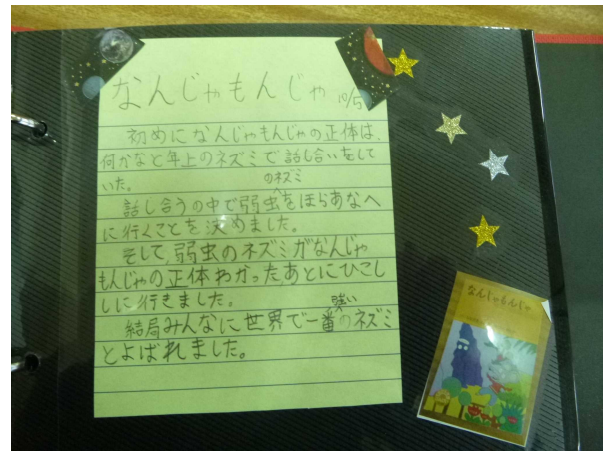 なんじゃもんじゃ 10/5
初めになんじゃもんじゃの正体は、
何かなと年上のネズミで話し合いをして
いた。
話し合うの中で弱虫のネズミをほらあなへ
に行くことを決めました。
そして、弱虫のネズミがなんじゃ
もんじゃの正体わかったあとにひこし
しに行きました。
結局みんなに世界で一番強いのネズミ
とよばれました。
なんじゃもんじゃ